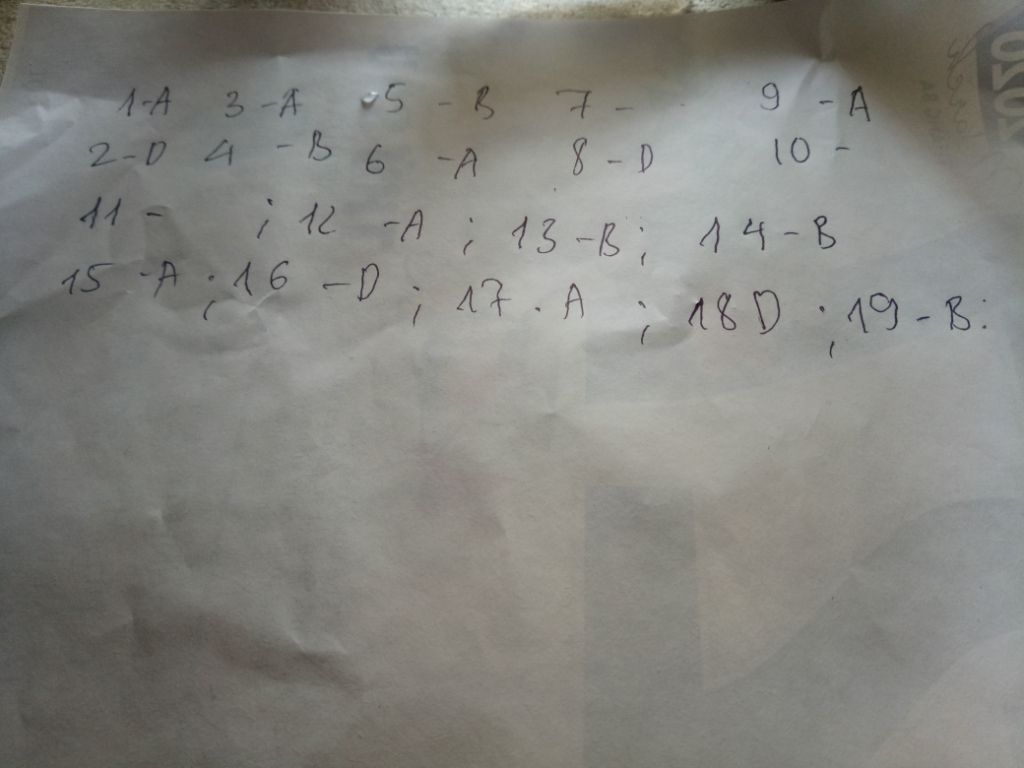 1-A 3-A 5-B 7- 9-A
2-D 4-B 6-A 8-D 10-
11- ; 12-A ; 13-B ; 14-B
15-A ; 16-D ; 17. A ; 18D ; 19-B:
2020